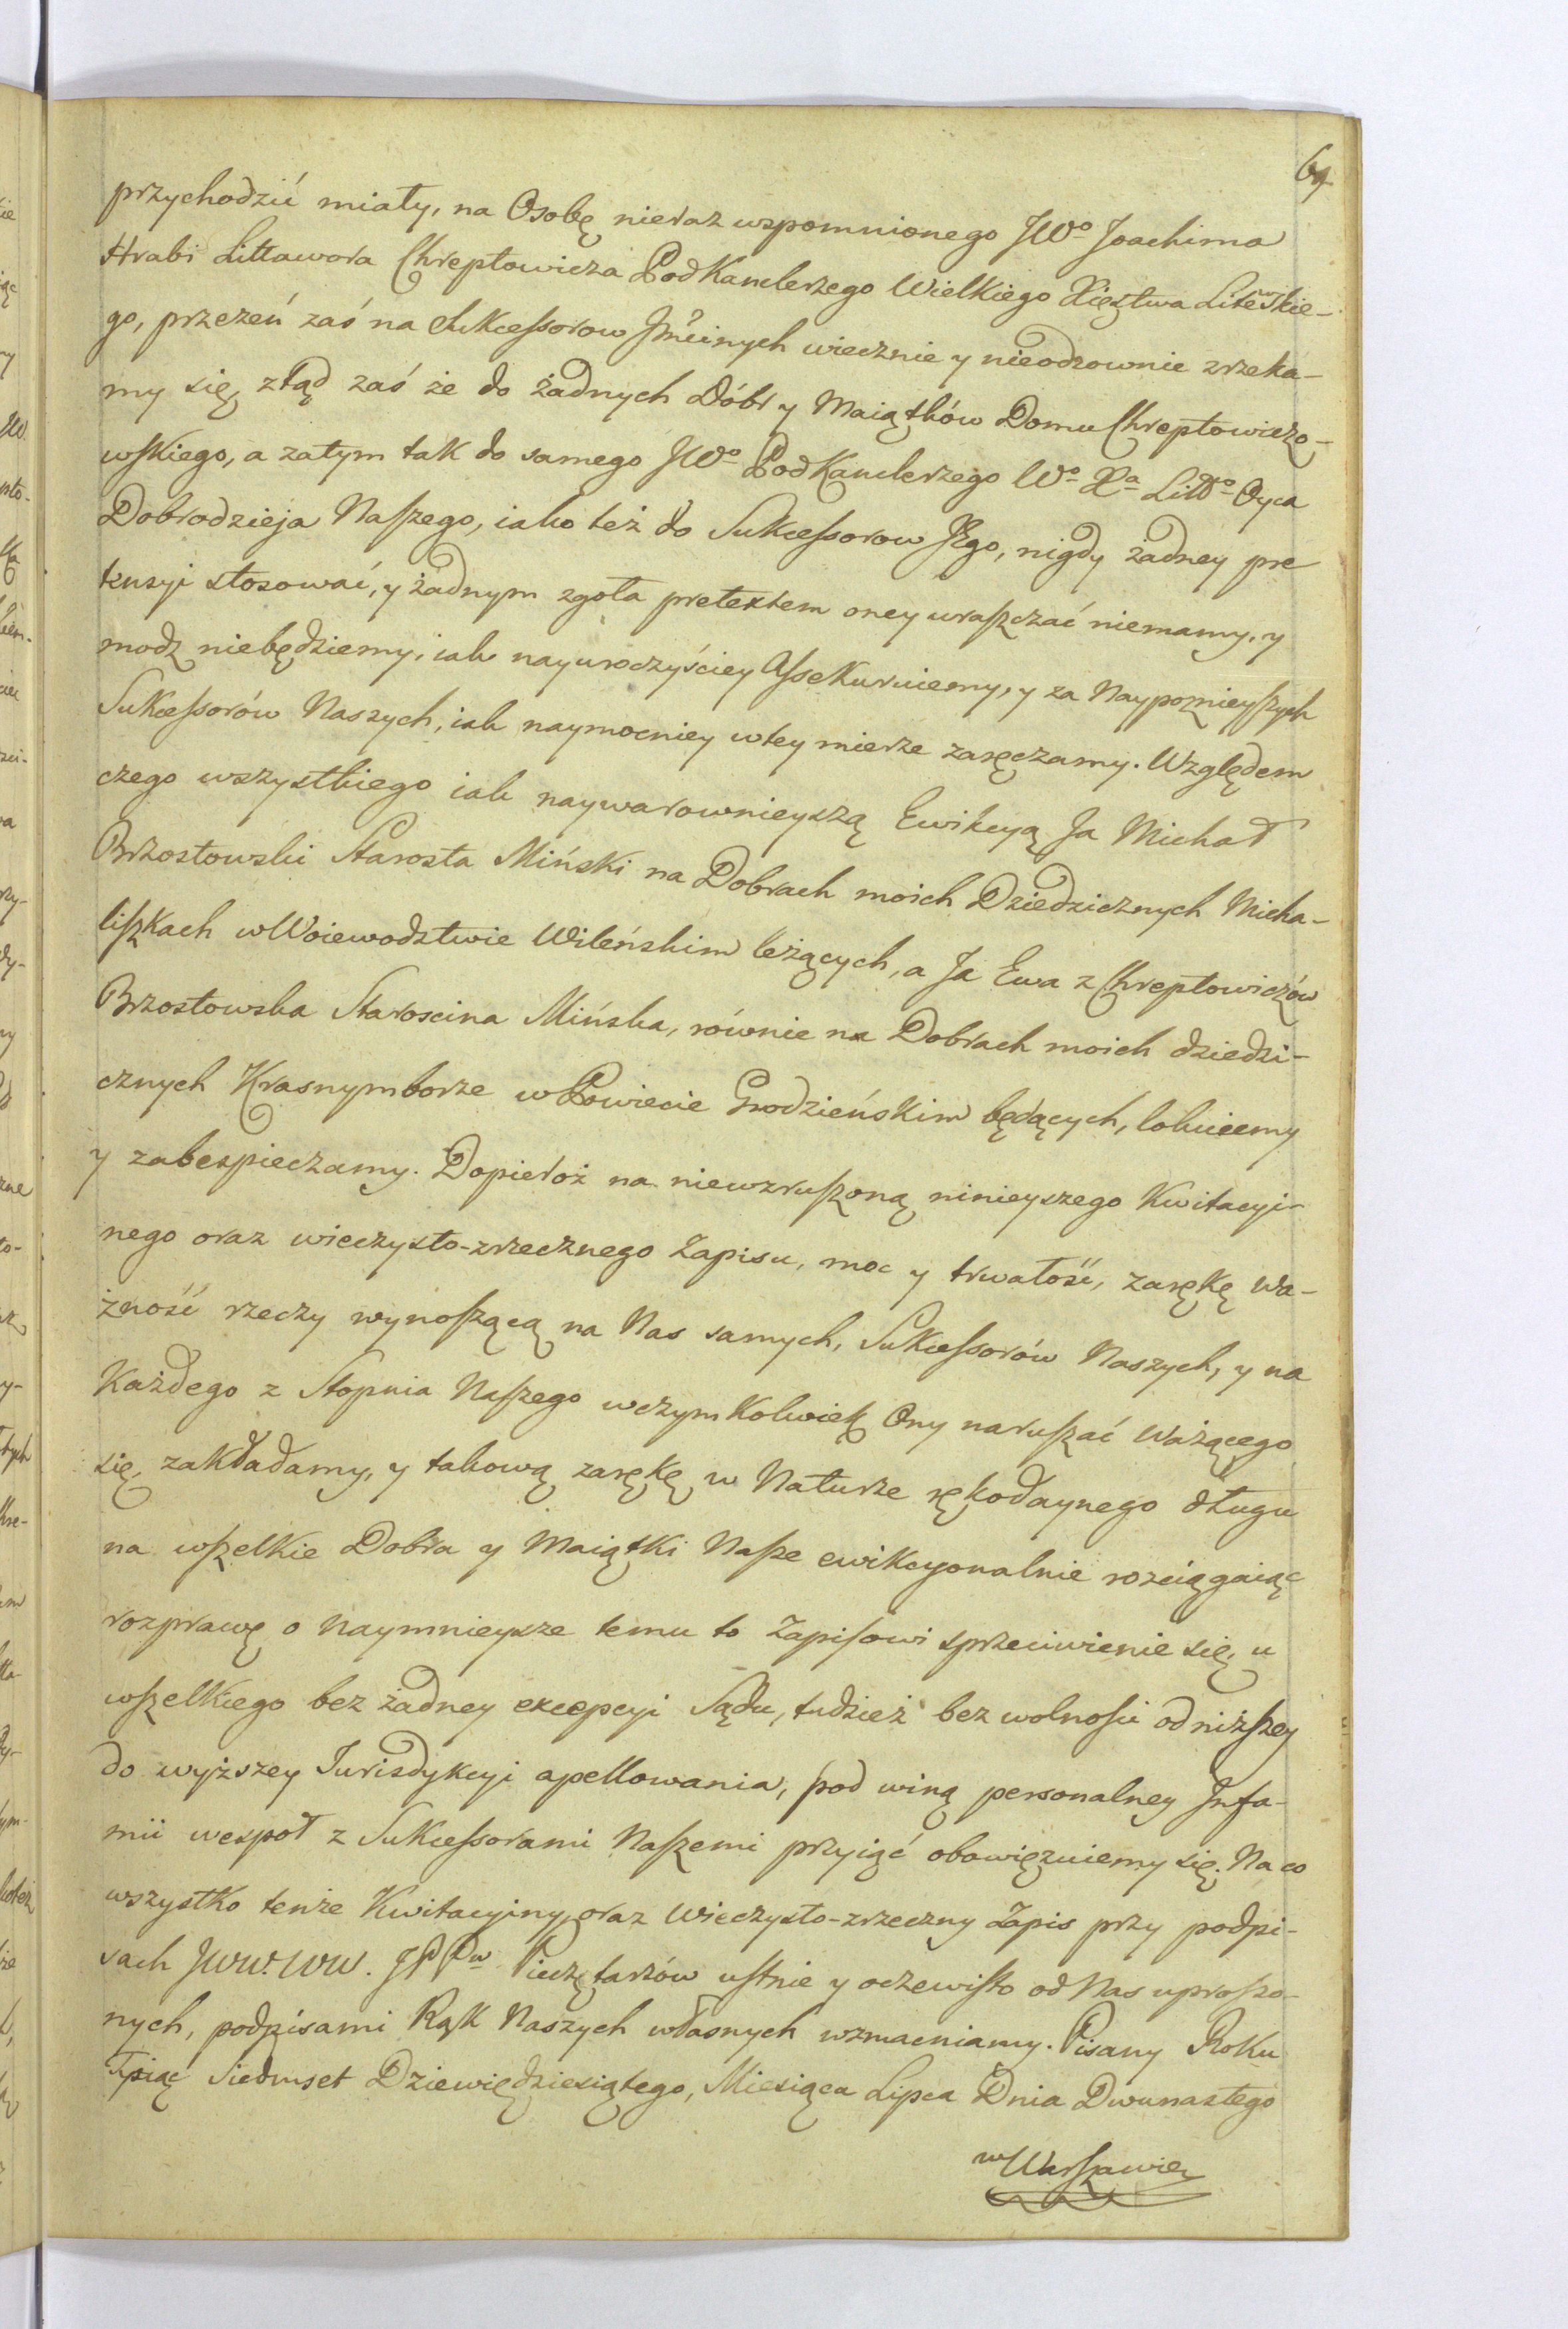 69
przychodzić miały, na Osobę nieraz wzpomnionego JWo Joachima
Hrabi Littawora Chreptowicza PodKanclerzego Wielkiego Xięztwa Litewskie-
go, przezeń zaś na Sukcessorow Jmcinych wiecznie y nieodzownie zrzeka-
my się, ztąd zaś że do żadnych Dóbr y Maiątków Domu Chreptowiczo-
wskiego, a zatym tak do samego JWo PodKanclerzego Wo Xa Litto Oyca
Dobrodzieja Naszego, iako też do Sukcessorow JEgo, nigdy żadney pre
tensyi stosować, y żadnym zgoła pretextem oney wraszczać niemamy, y
modz niebędziemy, iak nayuroczyściey Assekuruiemy, y za Naypoznieyszych
Sukcessorów Naszych, iak naymocniey wtey mierze zaręczamy. Względem
czego wszystkiego iak naywarownieyszą Ewikcyą Ja Michał
Brzostowski Starosta Miński na Dobrach moich Dziedzicznych Micha-
liszkach w Woiewodztwie Wileńskim leżących, a Ja Ewa z Chreptowiczów
Brzostowska Staroscina Mińska, równie na Dobrach moich dziedzi-
cznych Krasnymborze w Powiecie Grodzieńskim będących, lokuiemy
y zabespieczamy. Dopieroż na niewzruszoną ninieyszego Kwitacyi-
nego oraz wieczysto-zrzecznego Zapisu, moc y trwałość, zarękę wa-
żność rzeczy wynoszącą na Nas samych, Sukcessorów Naszych, y na
Każdego z Stopnia Naszego wczymkolwiek Ony naruszać ważącego
się, zakładamy, y takową zarękę w Naturze rękodaynego długu
na wszelkie Dobra y Maiątki Nasze ewikcyonalnie rozciągaiąc
rozprawę o naymnieysze temu to Zapisowi sprzeciwienie się, u
wszelkiego bez żadney excepcyi Sądu, tudzież bez wolnosci od niższey
do wyższey Jurisdykcyi apellowania, pod winą personalney Jnfa-
mii wespoł z Sukcessorami Naszemi przyiąć obowięzuiemy się. Na co
wszystko tenże Kwitacyiny, oraz wieczysto-zrzeczny Zapis przy podpi-
sach JWW. WW. JPPw Pieczętarzów ustnie y oczewisto od Nas uproszo-
nych, podpisami Rąk Naszych własnych wzmacniamy. Pisany Roku
Tysiąc Siedmset Dziewiędziesiątego, Miesiąca Lipca Dnia Dwunastego
w Warszawie